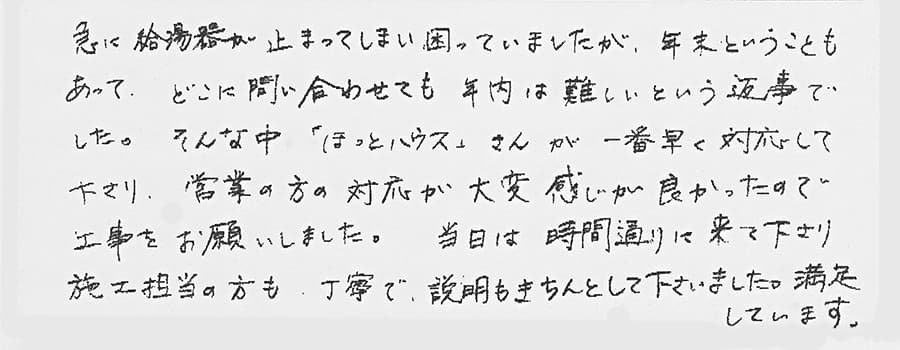 急に給湯器が止まってしまい困っていましたが、年末ということも
あって、どこに問い合わせても年内は難しいという返事で
した。そんな中「ほっとハウス」さんが一番早く対応して
下さり、営業の方の対応が大変感じが良かったので
工事をお願いしました。 当日は時間通りに来て下さり
施工担当の方も、丁寧で、説明もきちんとして下さいました。満足
しています。